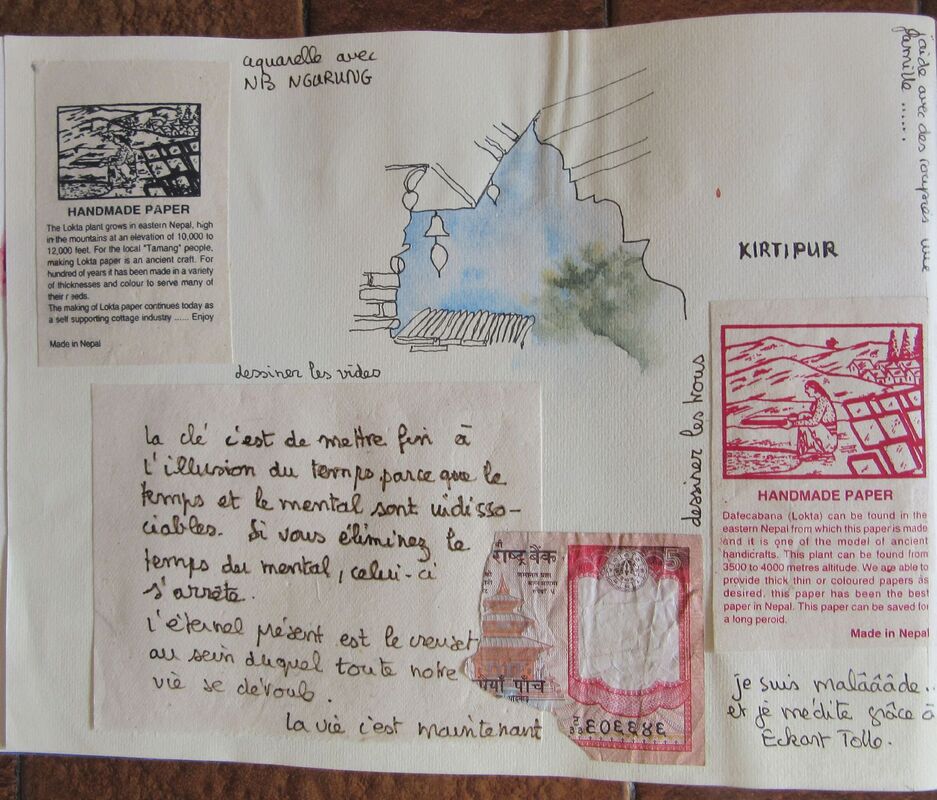 aquarelle avec
NB NGURUNG
j'aide avec des roupies une
famille ......
HANDMADE PAPER
The Lokta plant grows in eastern Nepal, high
in the mountains at an elevation of 10,000 to
12,000 feet. For the local "Tamang" people,
making Lokta paper is an ancient craft. For
hundred of years it has been made in a variety
of thicknesses and colour to serve many of
their needs.
The making of Lokta paper continues today as
a self supporting cottage industry ...... Enjoy
Made in Nepal
KIRTIPUR
dessiner les vides
dessiner les trous
la clé c'est de mettre fin à
l'illusion du temps, parce que le
temps et le mental sont indisso-
ciables. Si vous éliminez le
temps du mental, celui-ci
s'arrête.
l'éternel présent est le creuset
au sein duquel toute notre
vie se déroule.
la vie c'est maintenant
राष्ट्र बैंक
5
रुपैयाँ पाँच
६०६६४६
HANDMADE PAPER
Dafecabana (Lokta) can be found in the
eastern Nepal from which this paper is made
and it is one of the model of ancient
handicrafts. This plant can be found from
3500 to 4000 metres altitude. We are able to
provide thick thin or coloured papers as
desired, this paper has been the best
paper in Nepal. This paper can be saved for
a long peroid.
Made in Nepal
je suis malâââde..
et je médite grâce à
Eckart Tolle.